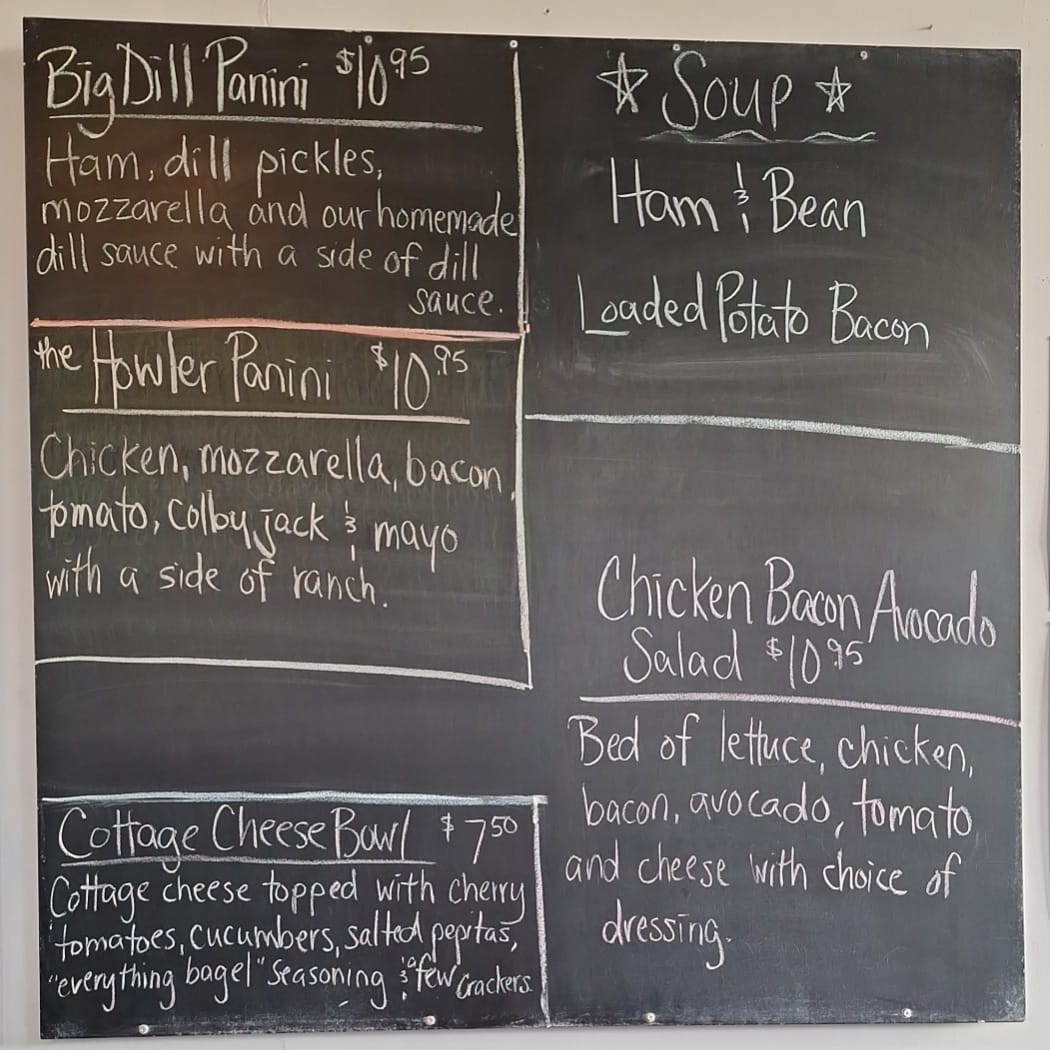 Big Dill Panini $10.95
Ham, dill pickles,
mozzarella and our homemade
dill sauce with a side of dill
sauce.
the Howler Panini $10.95
Chicken, mozzarella, bacon,
tomato, Colby jack & mayo
with a side of ranch.
Cottage Cheese Bowl $7.50
Cottage cheese topped with cherry
tomatoes, cucumbers, salted pepitas,
"everything bagel" seasoning & a few crackers.
Soup
Ham & Bean
Loaded Potato Bacon
Chicken Bacon Avocado
Salad $10.95
Bed of lettuce, chicken,
bacon, avocado, tomato
and cheese with choice of
dressing.